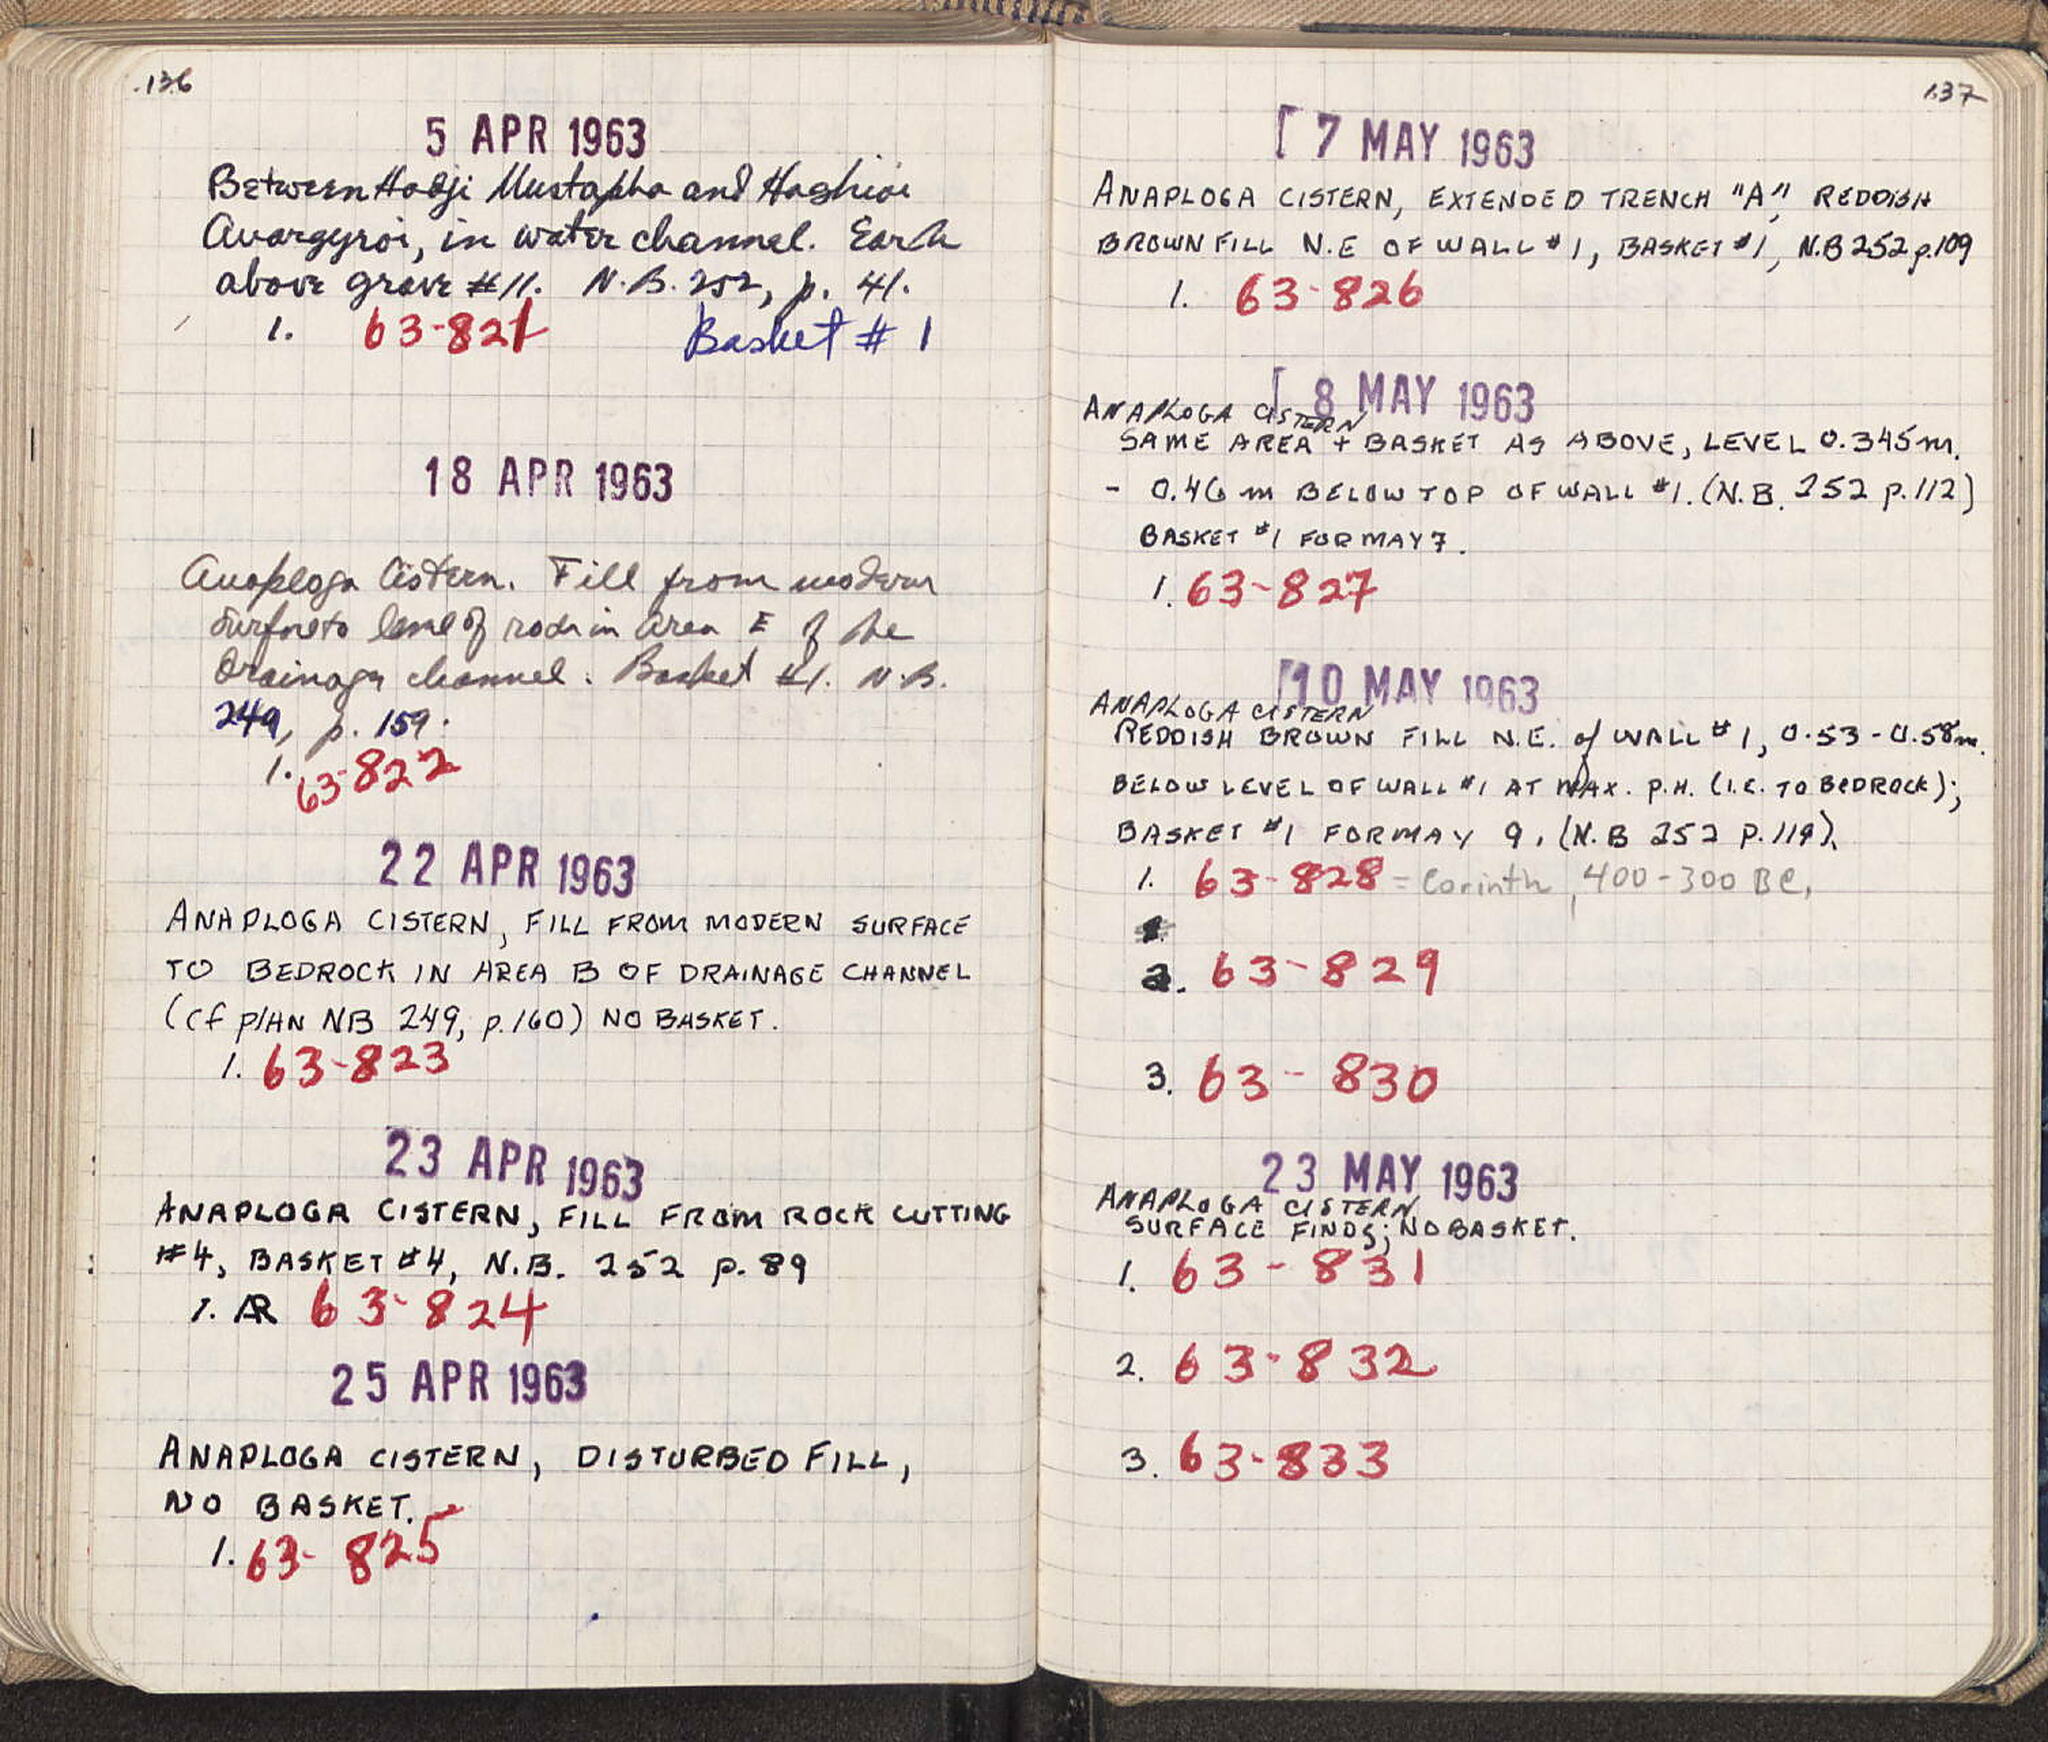 136
5 APR 1963
Between Hadji Mustapha and Haghioi
Anargyroi, in water channel. Earth
above grave #11. N.B. 252, p. 41.
1. 63-821 Basket # 1
18 APR 1963
Anaploga Cistern. Fill from modern
surface to level of rods in Area E of the
Drainage channel. Basket #1. N.B.
249, p. 159.
1. 63-822
22 APR 1963
ANAPLOGA CISTERN, FILL FROM MODERN SURFACE
TO BEDROCK IN AREA B OF DRAINAGE CHANNEL
(cf plan NB 249, p.160) NO BASKET.
1. 63-823
23 APR 1963
ANAPLOGA CISTERN, FILL FROM ROCK CUTTING
#4, BASKET #4, N.B. 252 p. 89
1. AR 63-824
25 APR 1963
ANAPLOGA CISTERN, DISTURBED FILL,
NO BASKET.
1. 63-825
137
[ 7 MAY 1963
ANAPLOGA CISTERN, EXTENDED TRENCH "A", REDDISH
BROWN FILL N.E OF WALL #1, BASKET #1, N.B 252 p.109
1. 63-826
[ 8 MAY 1963
ANAPLOGA CISTERN
SAME AREA + BASKET AS ABOVE, LEVEL 0.345m.
- 0.46 m BELOW TOP OF WALL #1. (N.B. 252 p.112)
BASKET #1 FOR MAY 7.
1. 63-827
[10 MAY 1963
ANAPLOGA CISTERN
REDDISH BROWN FILL N.E. of WALL #1, 0.53-0.58m.
BELOW LEVEL OF WALL #1 AT MAX. P.H. (I.E. TO BEDROCK);
BASKET #1 FOR MAY 9. (N.B 252 P.119).
1. 63-828 = Corinth, 400-300 BC,
2. 63-829
3. 63-830
23 MAY 1963
ANAPLOGA CISTERN
SURFACE FINDS; NO BASKET.
1. 63-831
2. 63-832
3. 63-833